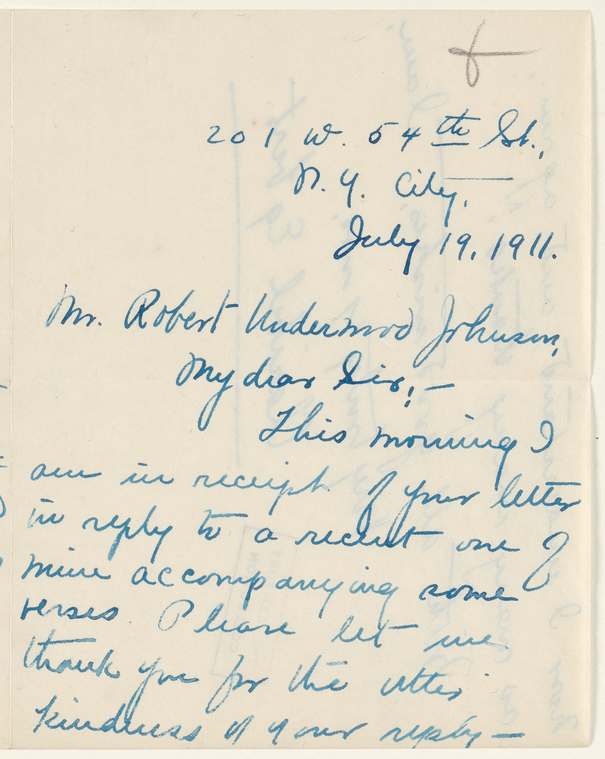 201 W. 54th St.,
N. Y. City,
July 19, 1911.
Mr. Robert Underwood Johnson,
My dear Sir;—
This morning I
am in receipt of your letter
in reply to a recent one of
mine accompanying some
verses. Please let me
thank you for the utter
kindness of your reply—